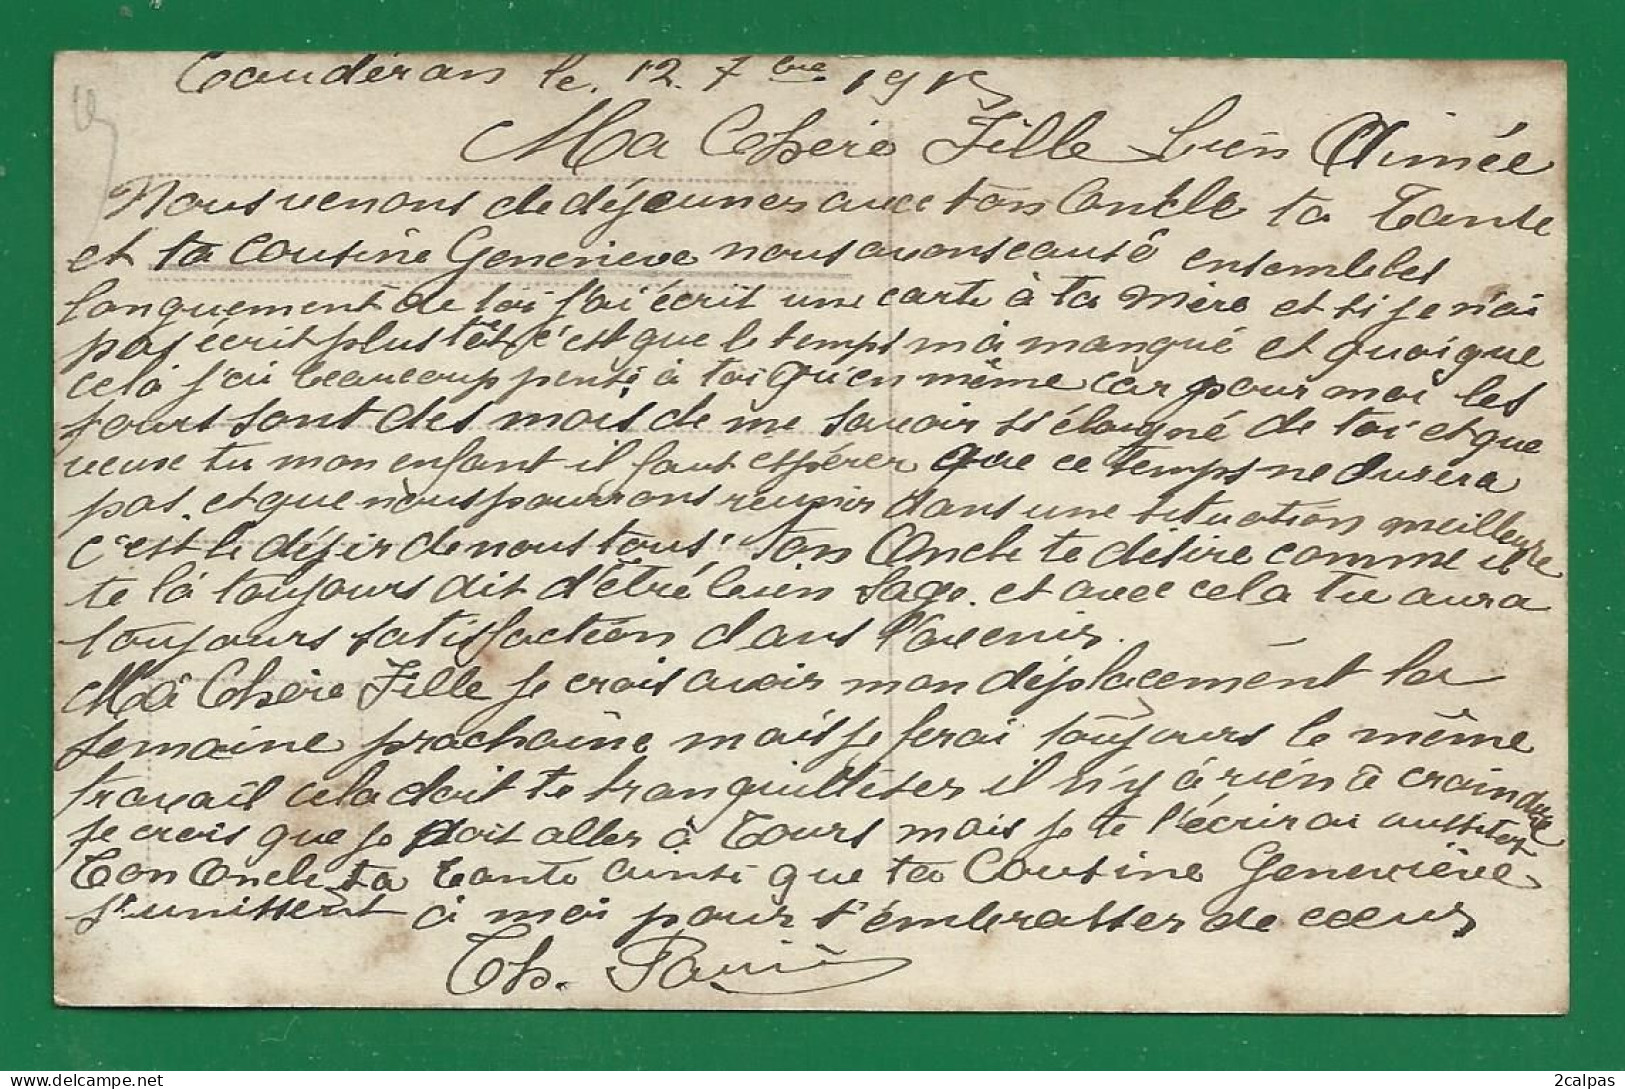 Caudéran le. 12. 7bre 1915
Ma Chère Fille bien Aimée
Nous venons de déjeuner avec ton Oncle ta Tante
et ta Cousine Genevieve nous avons causé ensembles
longuement de toi j'ai écrit une carte à ta Mère et si je n'ai
pas écrit plus tôt c'est que le temps m'a manqué et quoique
cela j'ai beaucoup pensé à toi qu'en même car pour moi les
jours sont des mois de me savoir si éloigné de toi et que
veux tu mon enfant il faut espérer que ce temps ne durera
pas. et que nous pourrons reunir dans une situation meilleure
c'est le désir de nous tous. Ton Oncle te désire comme il
te là toujours dit d'être bien sage. et avec cela tu aura
toujours satisfaction dans l'avenir.
Ma Chère Fille je crois avoir mon déplacement la
semaine prochaine mais je ferai toujours le même
travail cela doit te tranquilliser il n'y à rien à craindre
je crois que je dois aller à Tours mais je te l'écrirai aussitot
Ton Oncle ta Tante ainsi que ta Cousine Geneviève
s'unissent à moi pour t'embrasser de coeur
Th.
2calpas